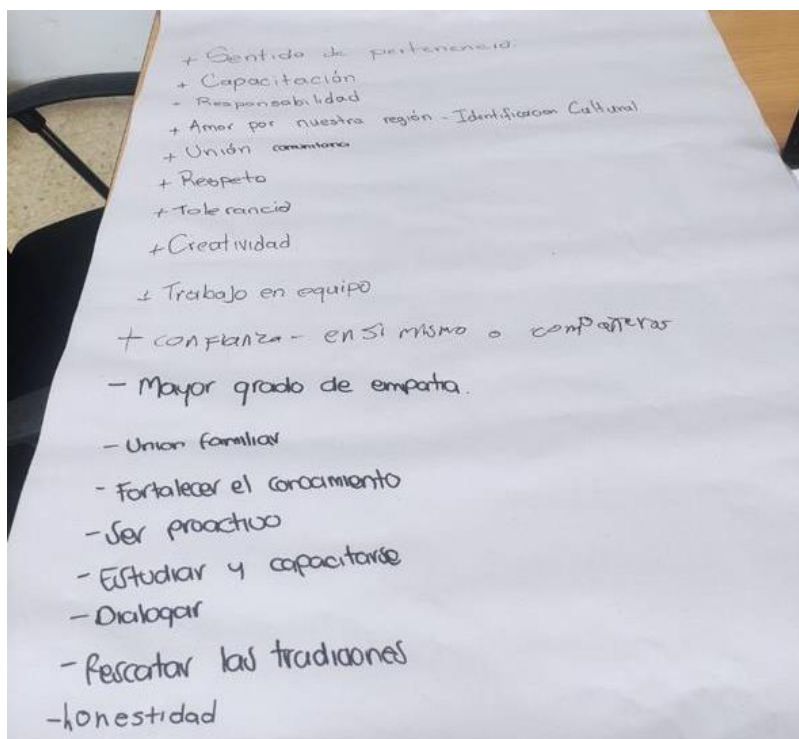 + Sentido de pertenencia.
+ Capacitación
- Responsabilidad
+ Amor por nuestra región - Identificacion Cultural
+ Unión comunitaria
+ Respeto
+ Tolerancia
+ Creatividad
+ Trabajo en equipo
+ confianza - en si mismo o compañeros
- Mayor grado de empatia.
- Union familiar
- Fortalecer el conocimiento
- Ser proactivo
- Estudiar y capacitarse
- Dialogar
- Rescatar las tradiciones
- honestidad